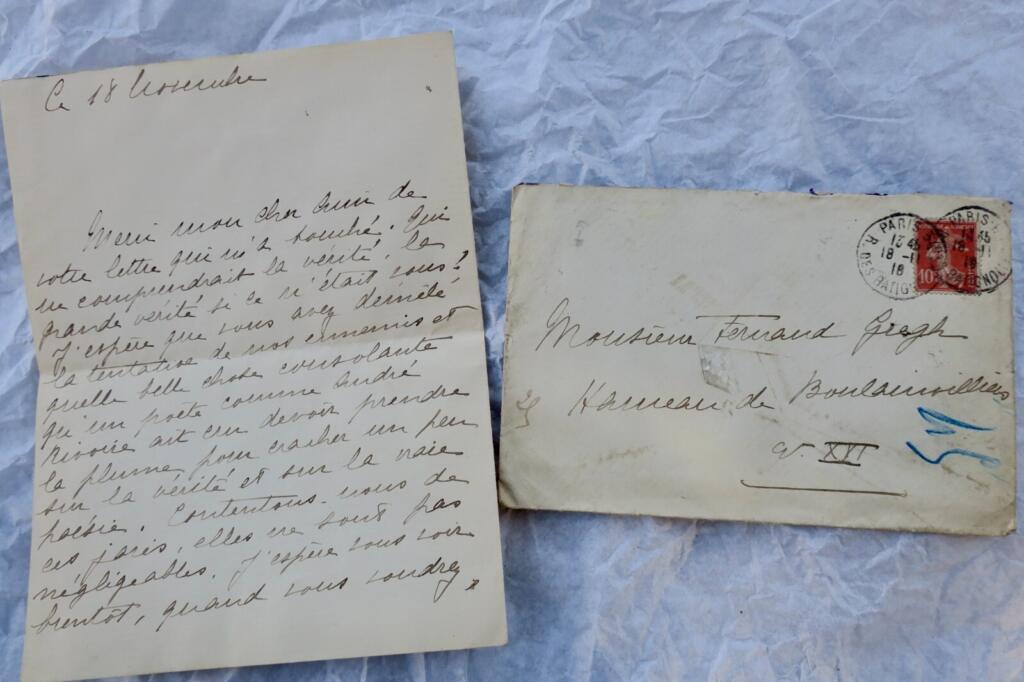 Ce 18 Novembre
Merci mon cher Ami de
votre lettre qui m'a touché. Qui
ne comprendrait la vérité, la
grande vérité si ce n'était vous?
J'espère que vous avez démêlé
la tentative de nos ennemis et
quelle belle chose consolante
qu'un poète comme André
Rivoire ait cru devoir prendre
la plume pour cracher un peu
sur la vérité et sur la vraie
poésie. Contentons-nous de
ces joies, elles ne sont pas
négligeables. J'espère vous voir
bientôt, quand vous voudrez.
PARIS
13 45
18 -11
PARIS
13 45
18 -11
10
Monsieur Fernand Gregh
Hameau de Boulainvilliers
XVI